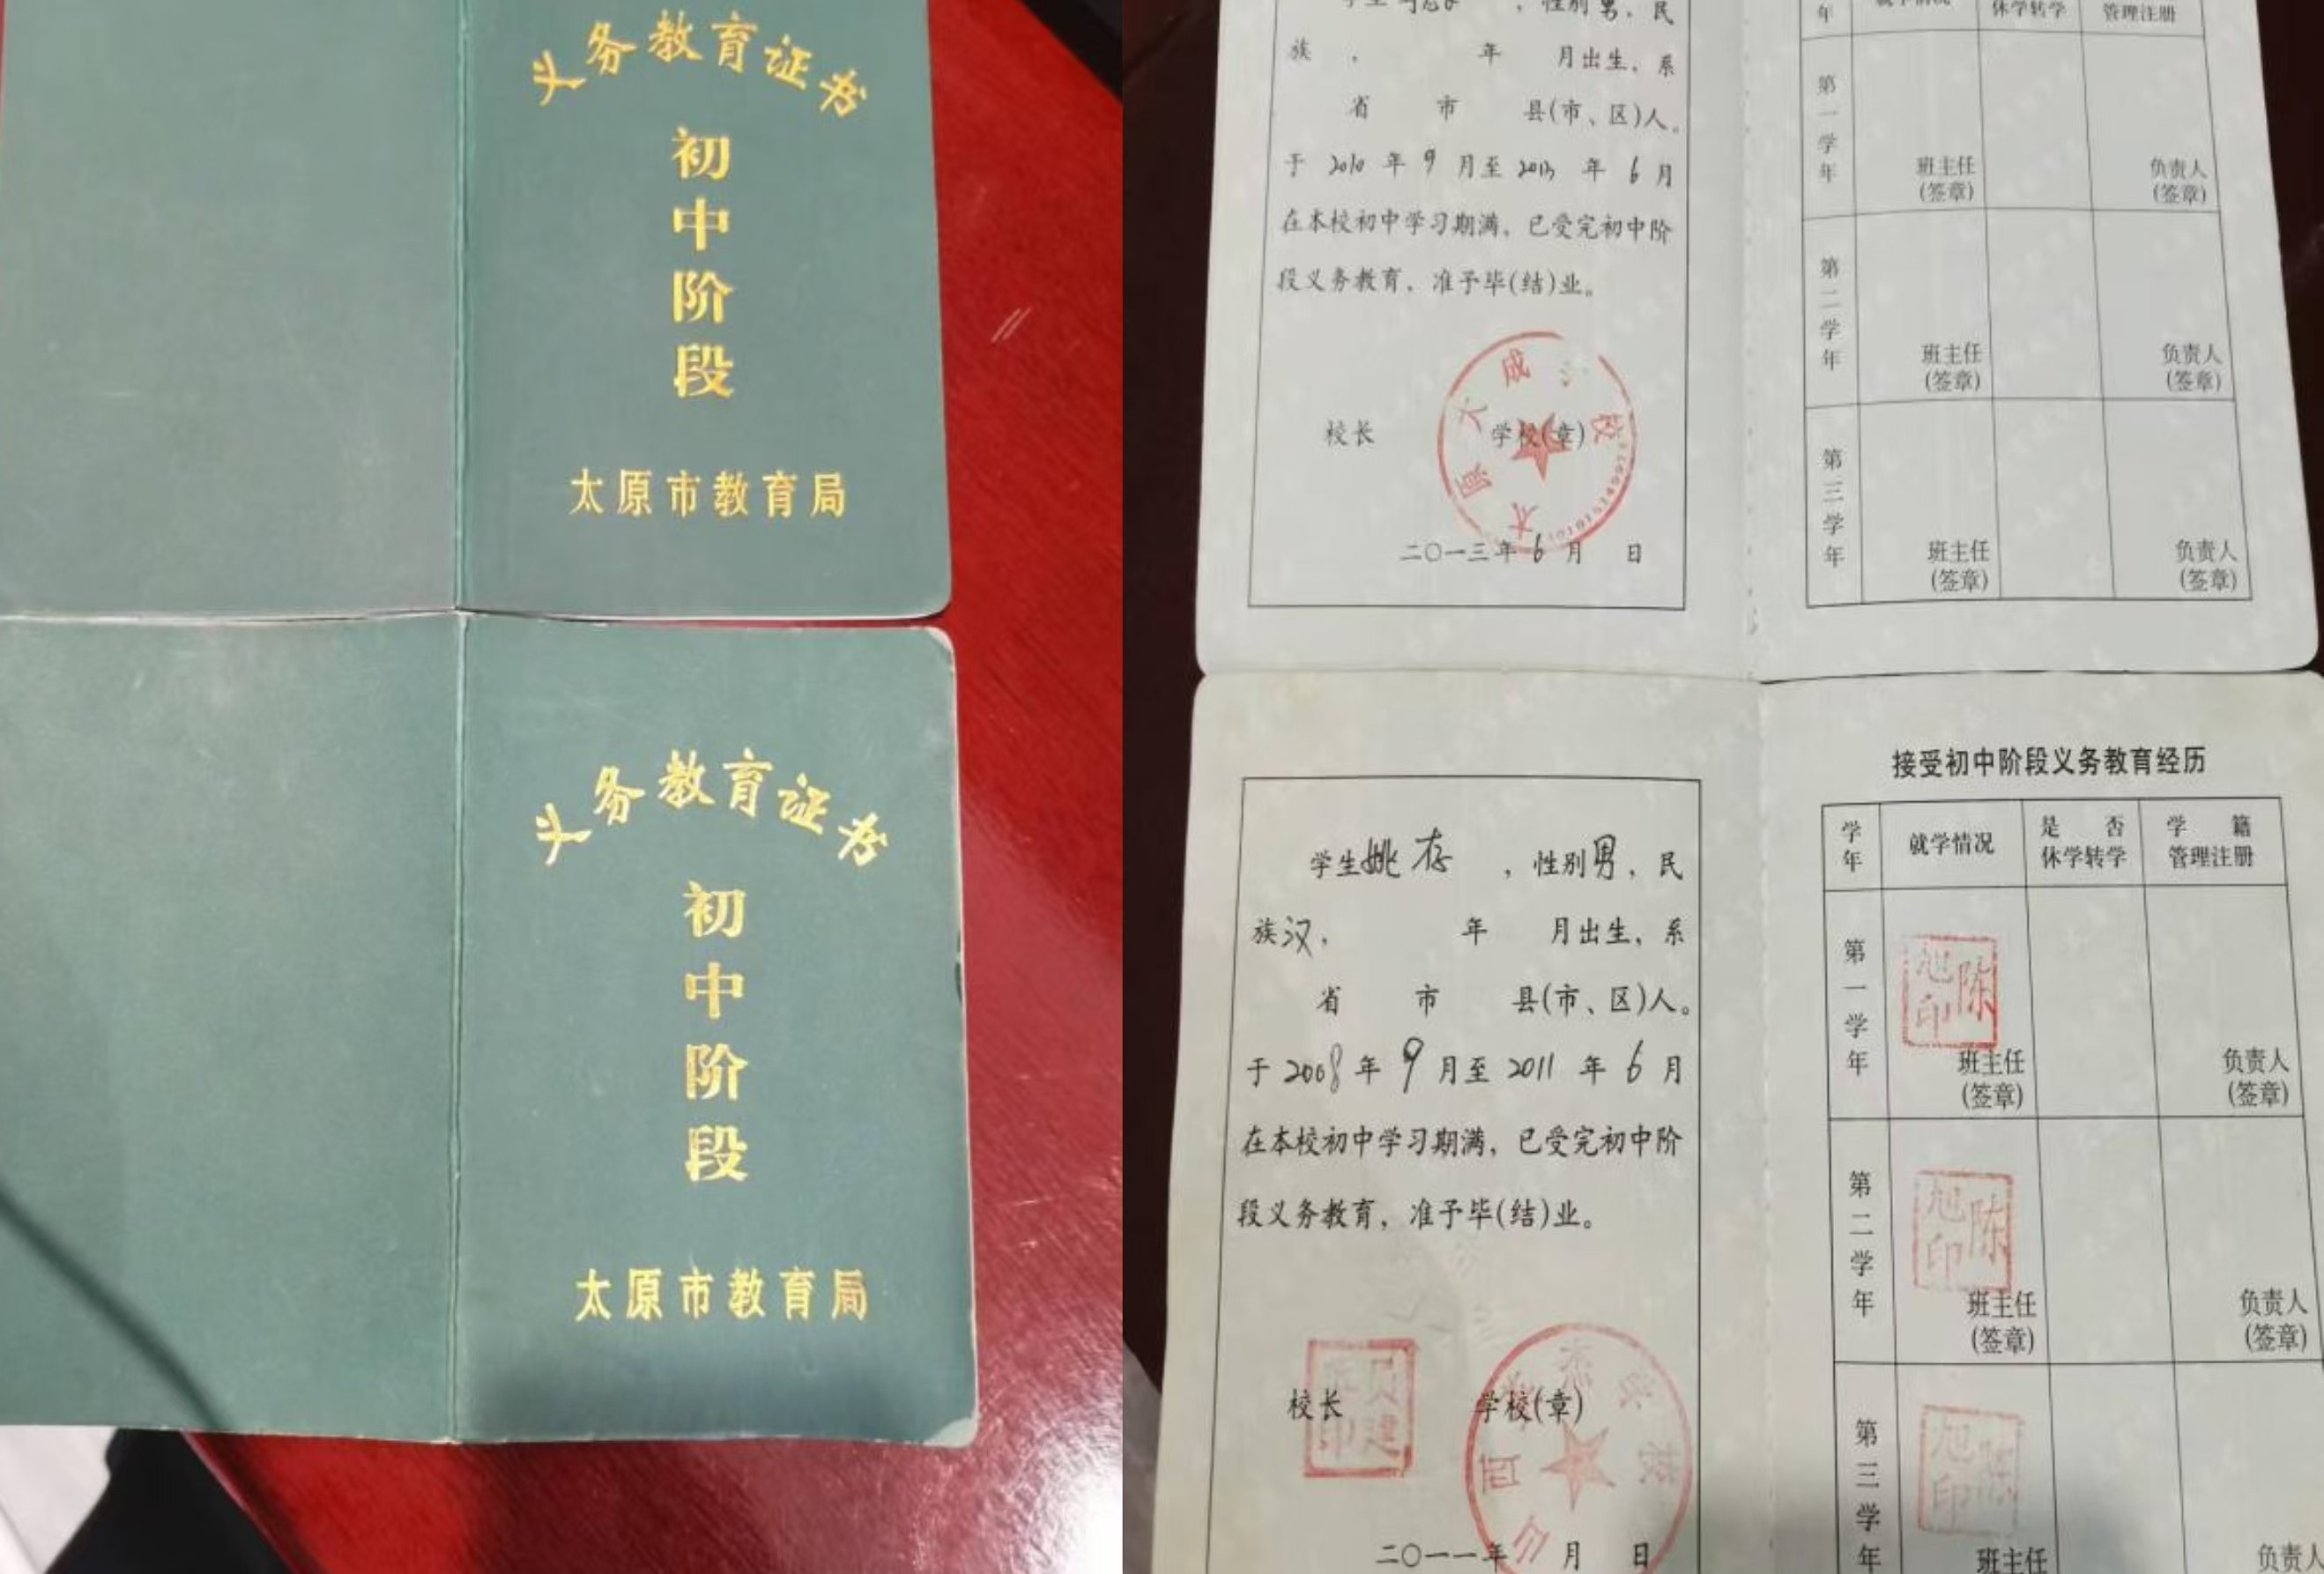 义务教育证书
初
中
阶
段
太原市教育局
义务教育证书
初
中
阶
段
太原市教育局
学生 ，性别男，民
族 ， 年 月出生，系
省 市 县(市、区)人。
于 2010 年 9 月至 2013 年 6 月
在本校初中学习期满，已受完初中阶
段义务教育，准予毕(结)业。
校长 学校(章)
太原大成 校
二〇一三年 6 月 日
年 就学情况 休学转学 管理注册
第一学年 班主任 负责人
(签章) (签章)
第二学年 班主任 负责人
(签章) (签章)
第三学年 班主任 负责人
(签章) (签章)
学生姚存 ，性别男，民
族汉， 年 月出生，系
省 市 县(市、区)人。
于 2008 年 9 月至 2011 年 6 月
在本校初中学习期满，已受完初中阶
段义务教育，准予毕(结)业。
校长 学校(章)
建印
山西
二〇一一年 月 日
接受初中阶段义务教育经历
学年 就学情况 是否休学转学 学籍管理注册
第一学年 陈旭印
班主任 负责人
(签章) (签章)
第二学年 陈旭印
班主任 负责人
(签章) (签章)
第三学年 陈旭印
班主任 负责人